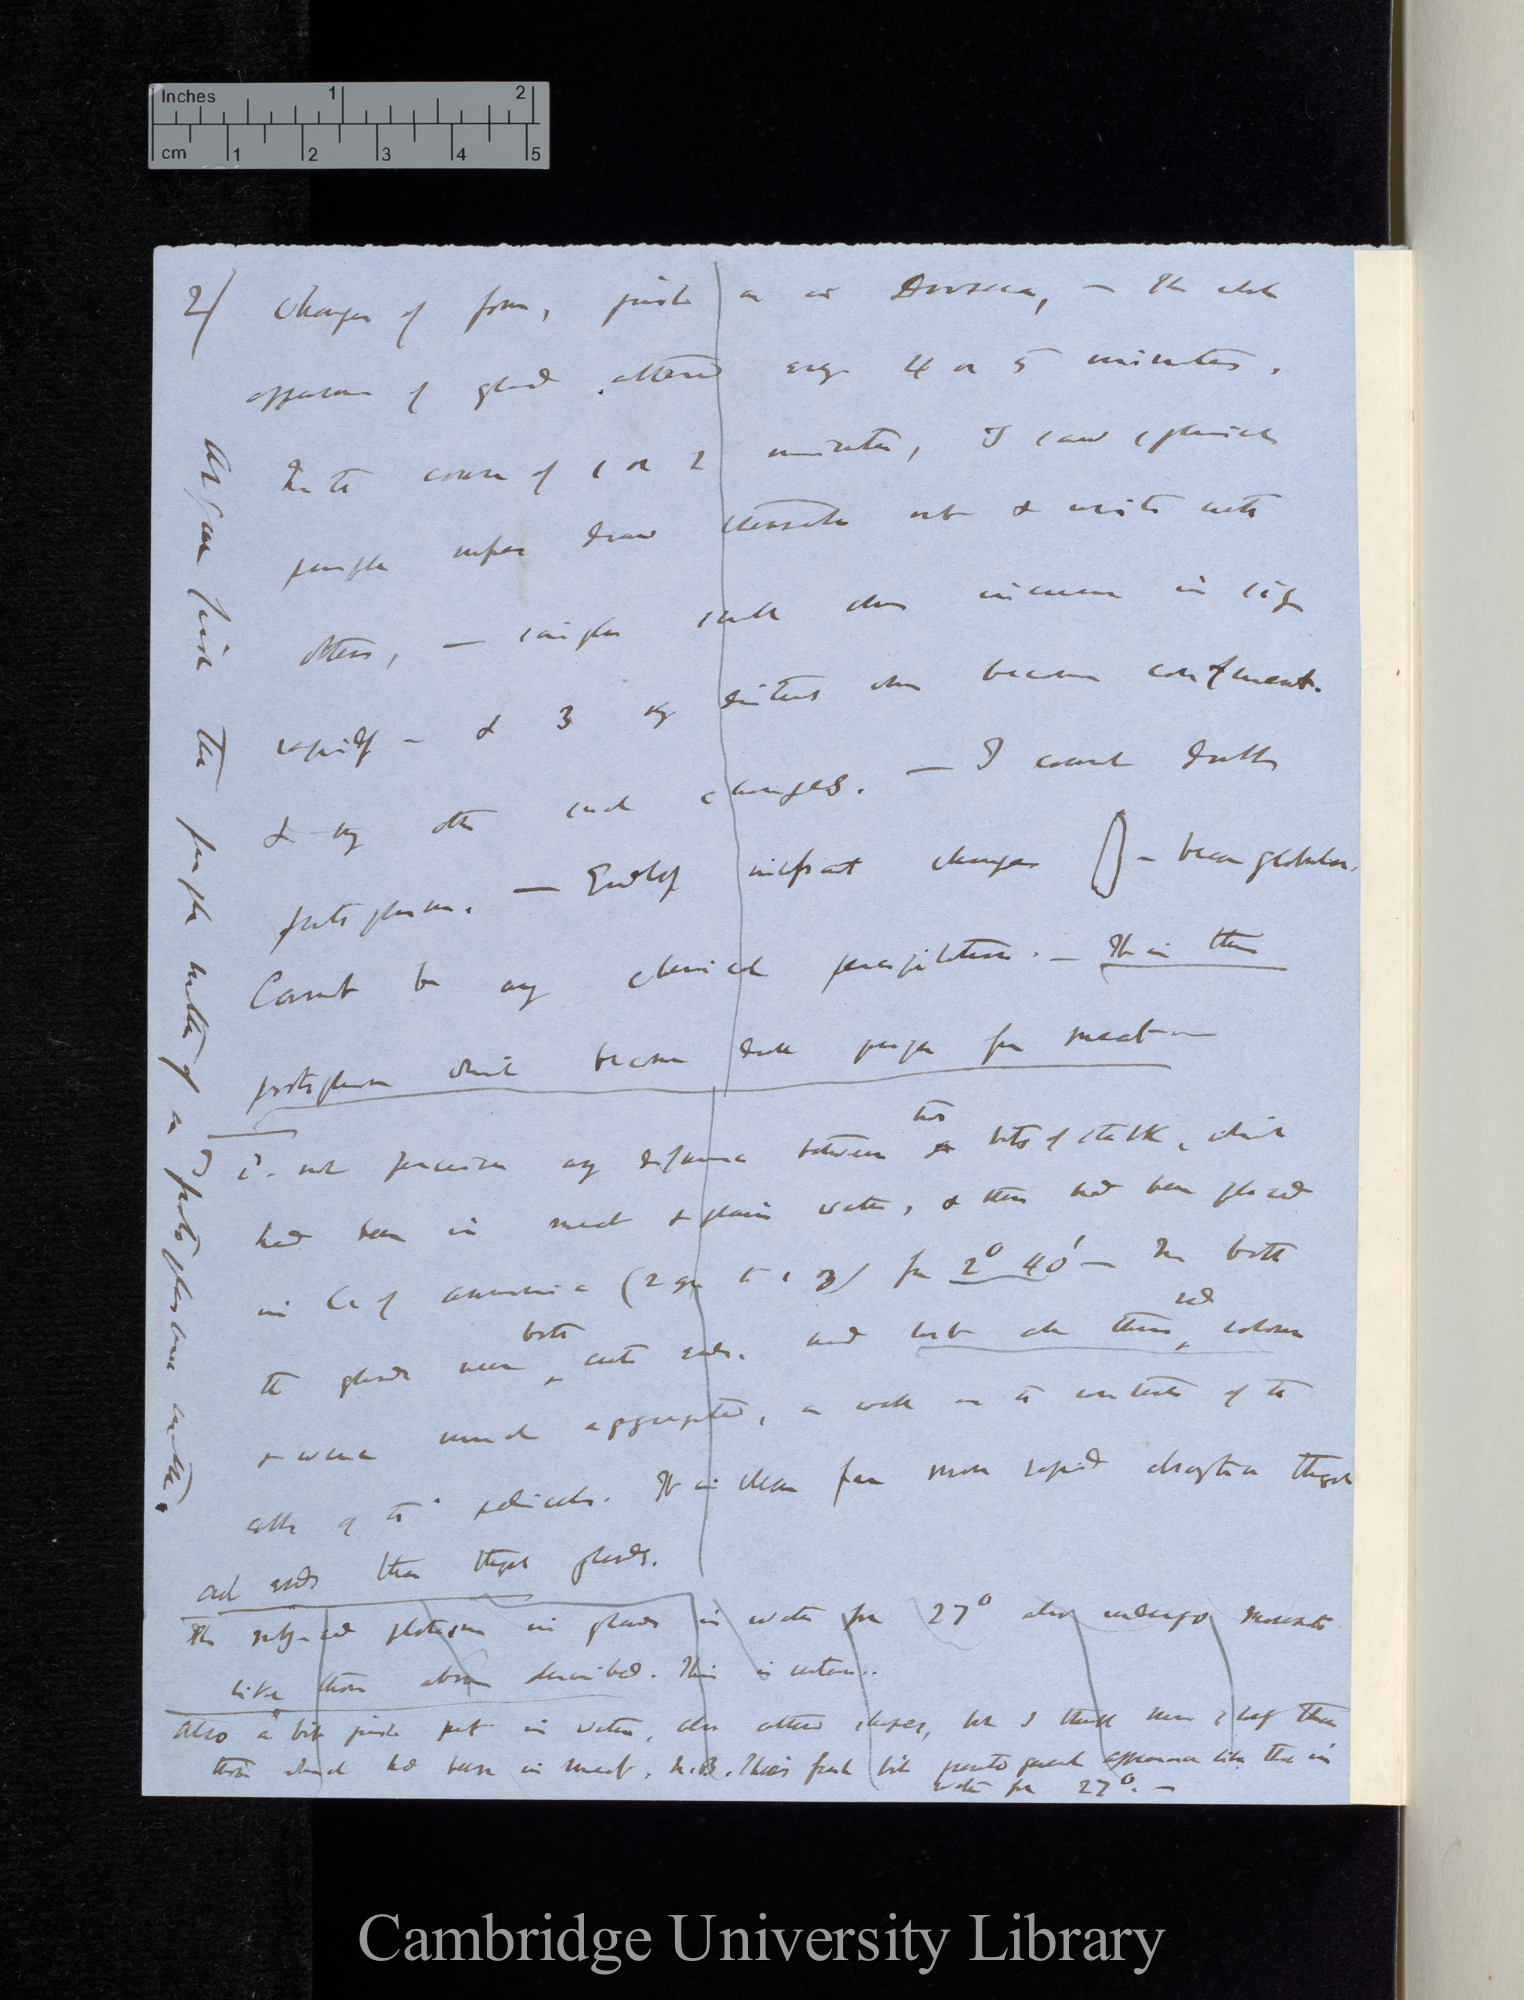 Inches 1 2
cm 1 2 3 4 5
2/ Changes of form, just as in Drosera, — The whole
appearance of gland altered every 4 or 5 minutes.
In the course of 1 or 2 minutes, I saw spherical
purple masses draw themselves out & unite with
others, — single small ones increase in size
rapidly — & 3 very distinct ones become confluent.
& many other such changes. — I cannot doubt
protoplasm. — Endless minutest changes — became globular.
Cannot be any chemical precipitation. — It is this
protoplasm which becomes dark purple from meat —
I not perceive any difference between two bits of stalk, which
had been in meat & plain water, & then had been placed
in C. of ammonia (2 gr to 1 oz) for 2° 40' — In both
the glands near both cut ends. and but also those red colour
& were much aggregated, as well as the contents of the
cells of the pedicels. It is clear far more rapid absorption through
cut ends than through glands.
The red protoplasm in glands in water for 27° also undergo movements
like those above described. This is certain..
Also a bit just put in water, also altered shapes, but I think more slowly than
those which had been in meat. N.B. This fresh bit presented general appearance like that in
water for 27°. —
Argue from the purple matter of a protoplasmic nature.
Cambridge University Library